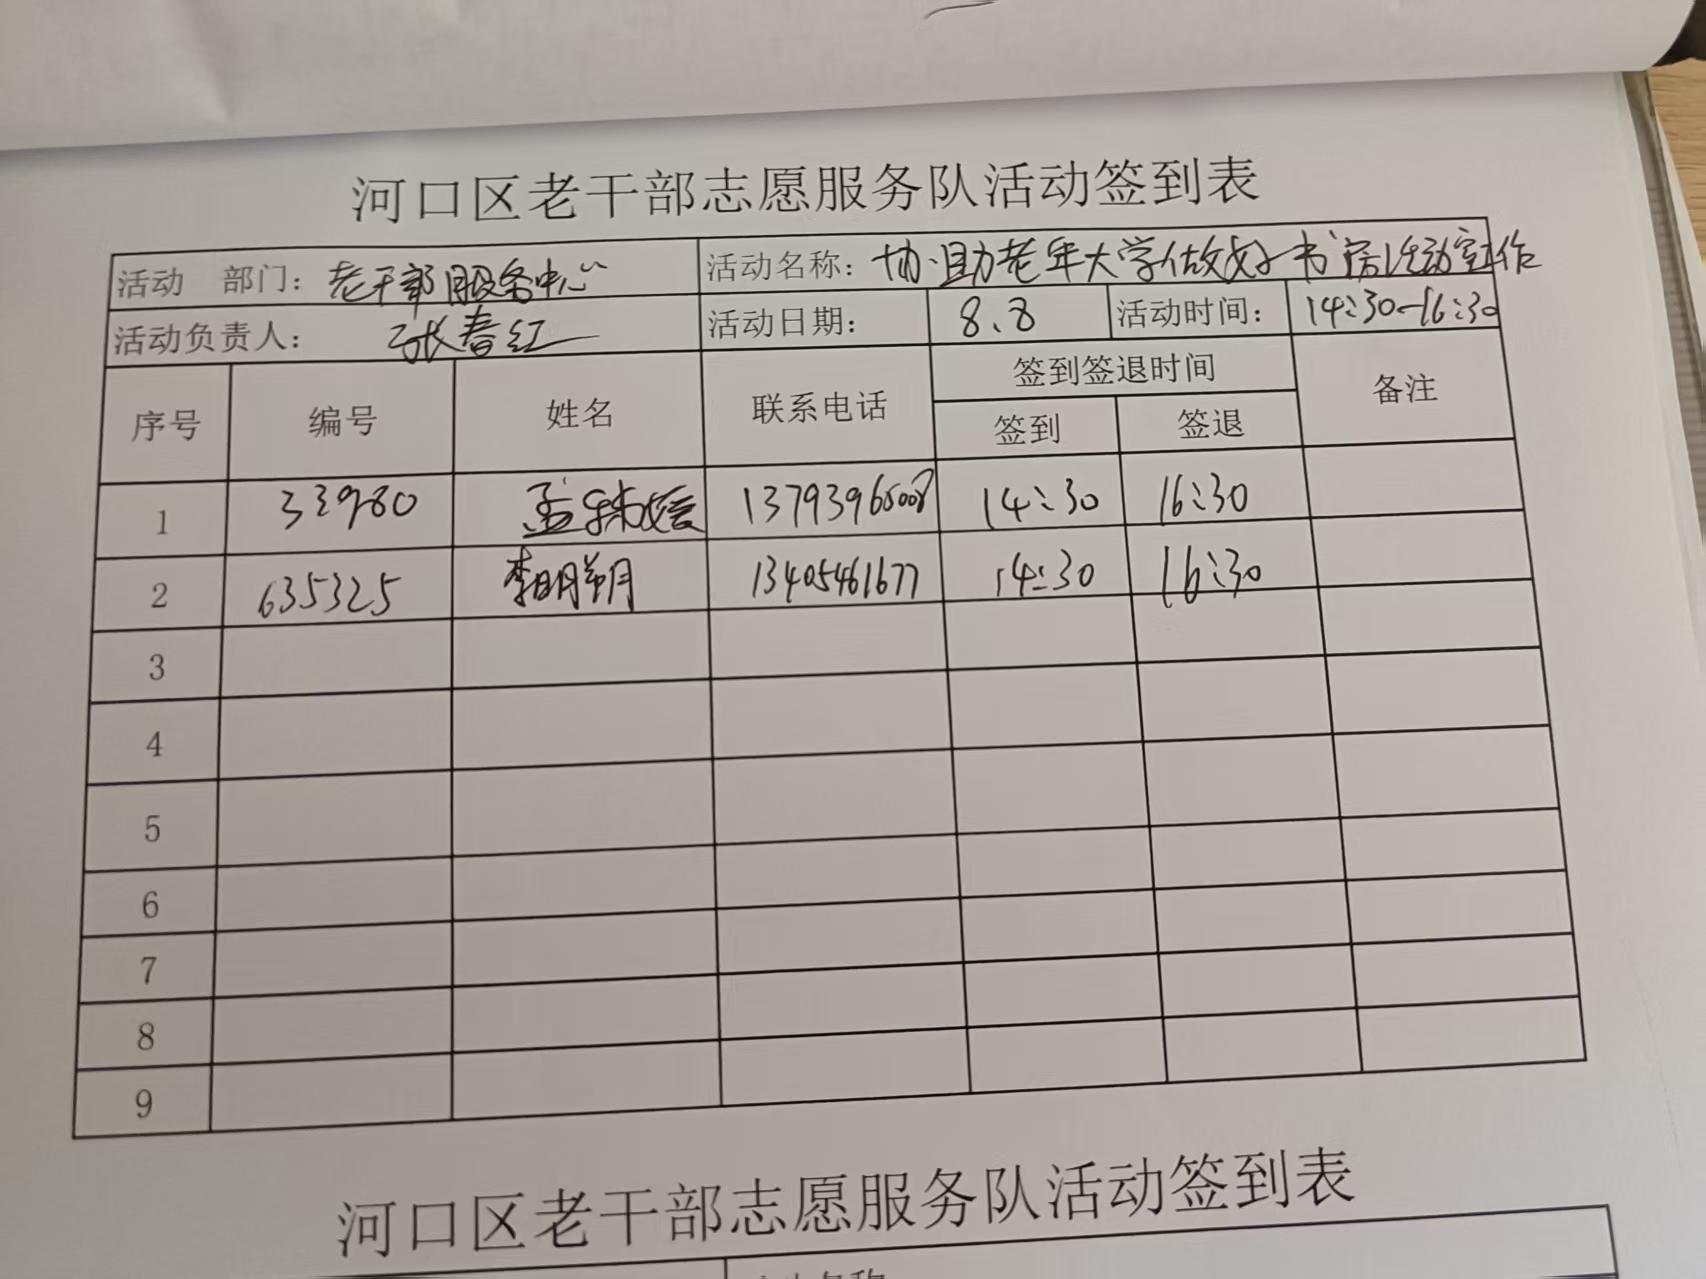 河口区老干部志愿服务队活动签到表
活动 部门：老干部服务中心 活动名称：协助老年大学做好书房活动室工作
活动负责人： 张春红 活动日期： 8.8 活动时间： 14:30-16:30
序号 编号 姓名 联系电话 签到签退时间 备注
签到 签退
1 33980 孟 13793966008 14:30 16:30
2 635325 李明朔 13405461677 14:30 16:30
3
4
5
6
7
8
9
河口区老干部志愿服务队活动签到表